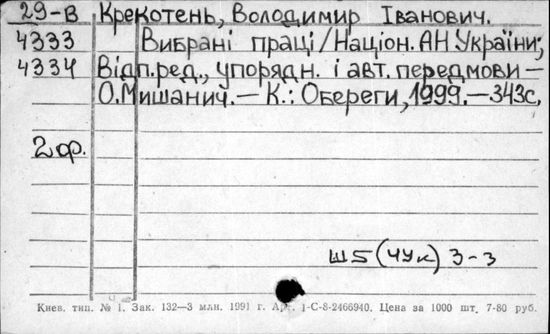 29-В Крекотень, Володимир Іванович.
4333 Вибрані праці/Націон. АН України;
4334 Відп.ред., упорядн. і авт. передмови —
О.Мишанич. — К.: Обереги, 1999. — 343с.
2ф.
Ш5(4Ук) 3-3
Киев. тип. № 1. Зак. 132—3 млн. 1991 г. 1-С-8-2466940. Цена за 1000 шт. 7-80 руб.